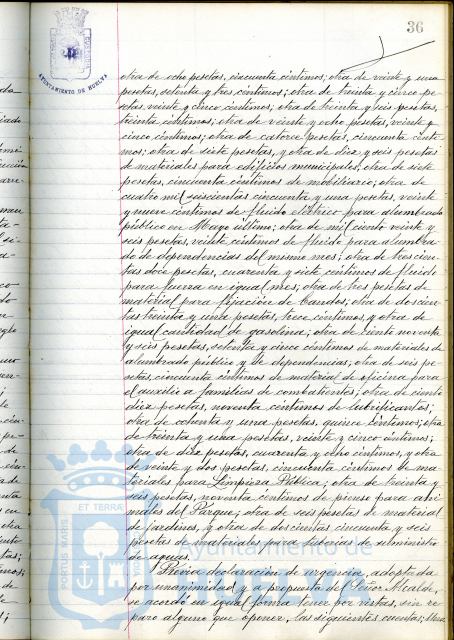 36
AYUNTAMIENTO DE HUELVA
otra de ocho pesetas, cincuenta céntimos; otra de veinte y una
pesetas, setenta y tres céntimos; otra de treinta y cinco pe-
setas, veinte y cinco céntimos; otra de treinta y seis pesetas,
treinta céntimos; otra de veinte y ocho pesetas, veinte y
cinco céntimos; otra de catorce pesetas, cincuenta cénti-
mos; otra de siete pesetas, y otra de diez y seis pesetas
de materiales para edificios municipales; otra de siete
pesetas, cincuenta céntimos de mobiliario; otra de
cuatro mil seiscientas cincuenta y una pesetas, veinte
y nueve céntimos de fluido eléctrico para alumbrado
público en Mayo último; otra de mil ciento veinte y
seis pesetas, veinte céntimos de fluido para alumbra-
do de dependencias del mismo mes; otra de trescien-
tas doce pesetas, cuarenta y siete céntimos de fluido
para fuerza en igual mes; otra de tres pesetas de
material para fijación de bandos; otra de doscien-
tas treinta y una pesetas, trece céntimos y otra de
igual cantidad de gasolina; otra de ciento noventa
y seis pesetas, setenta y cinco céntimos de materiales de
alumbrado público y de dependencias; otra de seis pe-
setas, cincuenta céntimos de material de oficina para
el auxilio a familias de combatientes; otra de ciento
diez pesetas, noventa céntimos de lubrificantes;
otra de ochenta y una pesetas, quince céntimos; otra
de treinta y una pesetas, veinte y cinco céntimos;
otra de diez pesetas, cuarenta y ocho céntimos, y otra
de veinte y dos pesetas, cincuenta céntimos de ma-
teriales para Limpieza Pública; otra de treinta y
seis pesetas, noventa céntimos de pienso para ani-
males del Parque; otra de seis pesetas de material
de jardines, y otra de doscientas cincuenta y seis
pesetas de materiales para tuberías de suministro
de aguas.
Previa declaración de urgencia, adoptada
por unanimidad y a propuesta del Señor Alcalde,
se acordó en igual forma tener por vistas, sin re-
paro alguno que oponer, las siguientes cuentas: Una
PORTUS MARIS ET TERRAE
Ayuntamiento de
HUELVA